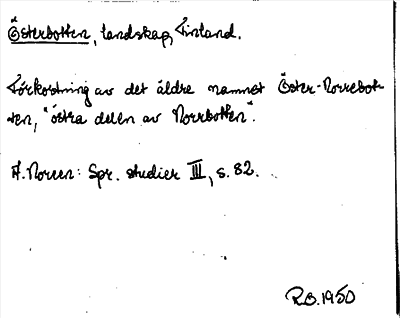 Österbotten, landskap, Finland.
Förkortning av det äldre namnet Öster-Norrebot-
ten, "östra delen av Norrbotten".
A. Noreen: Spr. studier III, s. 82.
R.B. 1950